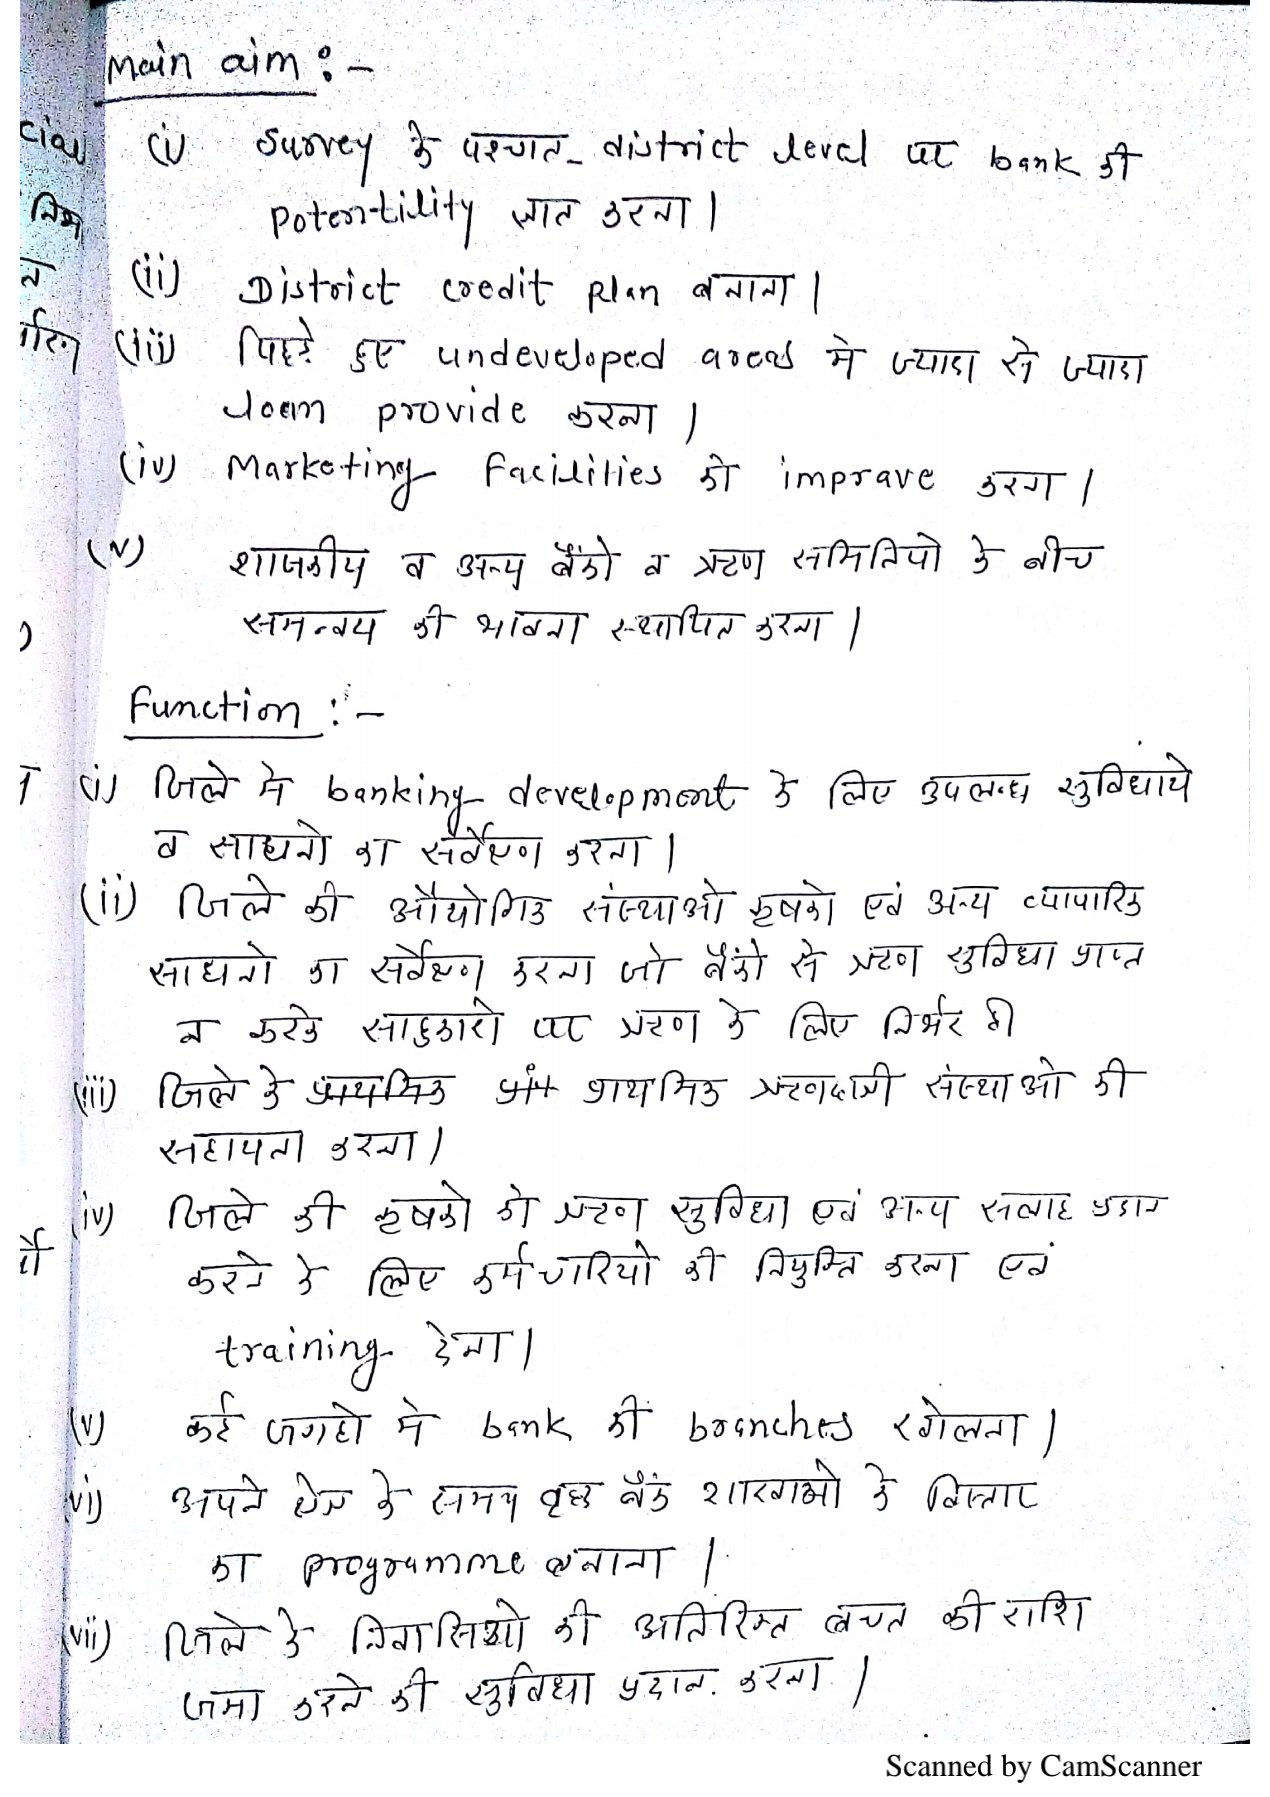 Main aim :-
(i) Survey के पश्चात district level पर bank की
Potentility ज्ञात करना।
(ii) District credit plan बनाना।
(iii) पिछड़े हुए undeveloped areas मे ज्यादा से ज्यादा
loan provide करना।
(iv) Marketing facilities को imprave करना।
(v) शाजकीय व अन्य बैंको व ऋण समितियो के बीच
समन्वय की भावना स्थापित करना।
Function :-
(i) जिले मे banking development के लिए उपलब्ध सुविधाये
व साधनो का सर्वेक्षण करना।
(ii) जिले की औयोगिक संस्थाओ कृषको एवं अन्य व्यापारिक
साधनो का सर्वेक्षण करना जो बैंको से ऋण सुविधा प्राप्त
न करके साहुकारो पर ऋण के लिए निर्भर ही
(iii) जिले के प्राथमिक प्राथमिक ऋणदात्री संस्थाओ की
सहायता करना।
(iv) जिले की कृषको को ऋण सुविधा एवं अन्य सलाह प्रदान
करने के लिए कर्मचारियो की नियुक्ति करना एवं
training देना।
(v) कई जगहो मे bank की branches खोलना।
(vi) अपने क्षेत्र के समय बैंक शाखाओ के विस्तार
का programme बनाना।
(vii) जिले के निवासिओ की अतिरिक्त बचत की राशि
जमा करने की सुविधा प्रदान करना।
Scanned by CamScanner